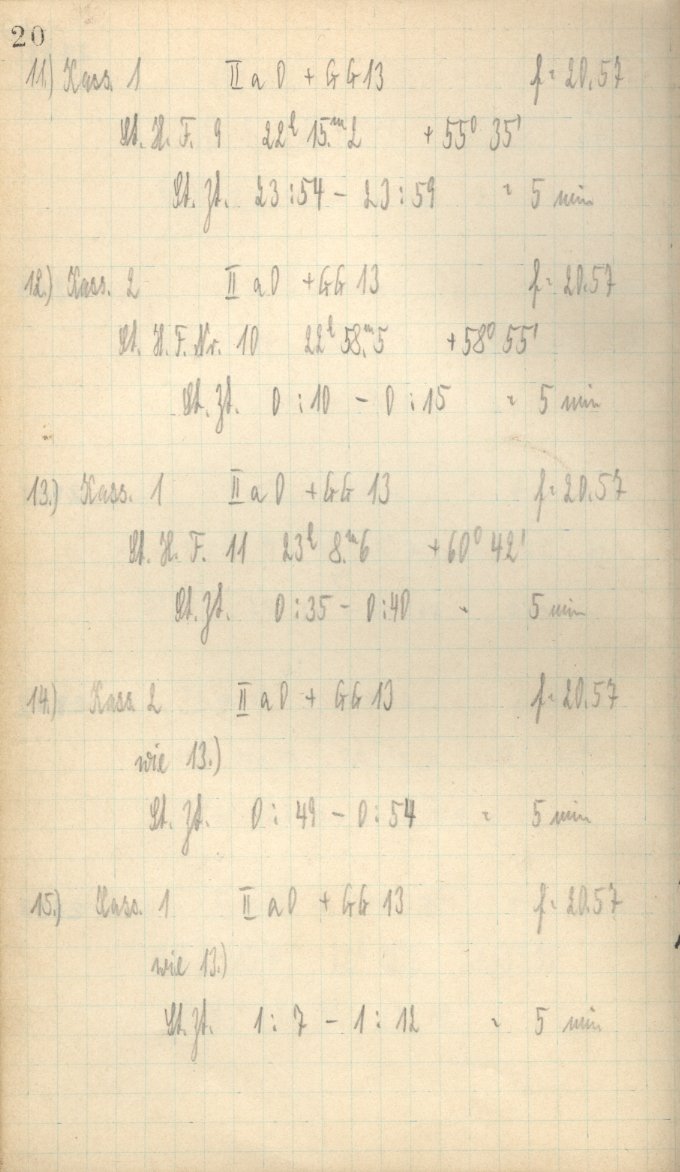 20
11.) Kass. 1 II a 0 + GG 13 f = 20.57
St. H. F. 9 22h 15.m2 +55° 35'
St. Zt. 23:54 - 23:59 = 5 min
12.) Kass. 2 II a 0 + GG 13 f = 20.57
St. H. F. Nr. 10 22h 58.m5 +58° 55'
St. Zt. 0:10 - 0:15 = 5 min
13.) Kass. 1 II a 0 + GG 13 f = 20.57
St. H. F. 11 23h 8.m6 +60° 42'
St. Zt. 0:35 - 0:40 = 5 min
14.) Kass. 2 II a 0 + GG 13 f = 20.57
wie 13.)
St. Zt. 0:49 - 0:54 = 5 min
15.) Kass. 1 II a 0 + GG 13 f = 20.57
wie 13.)
St. Zt. 1:7 - 1:12 = 5 min